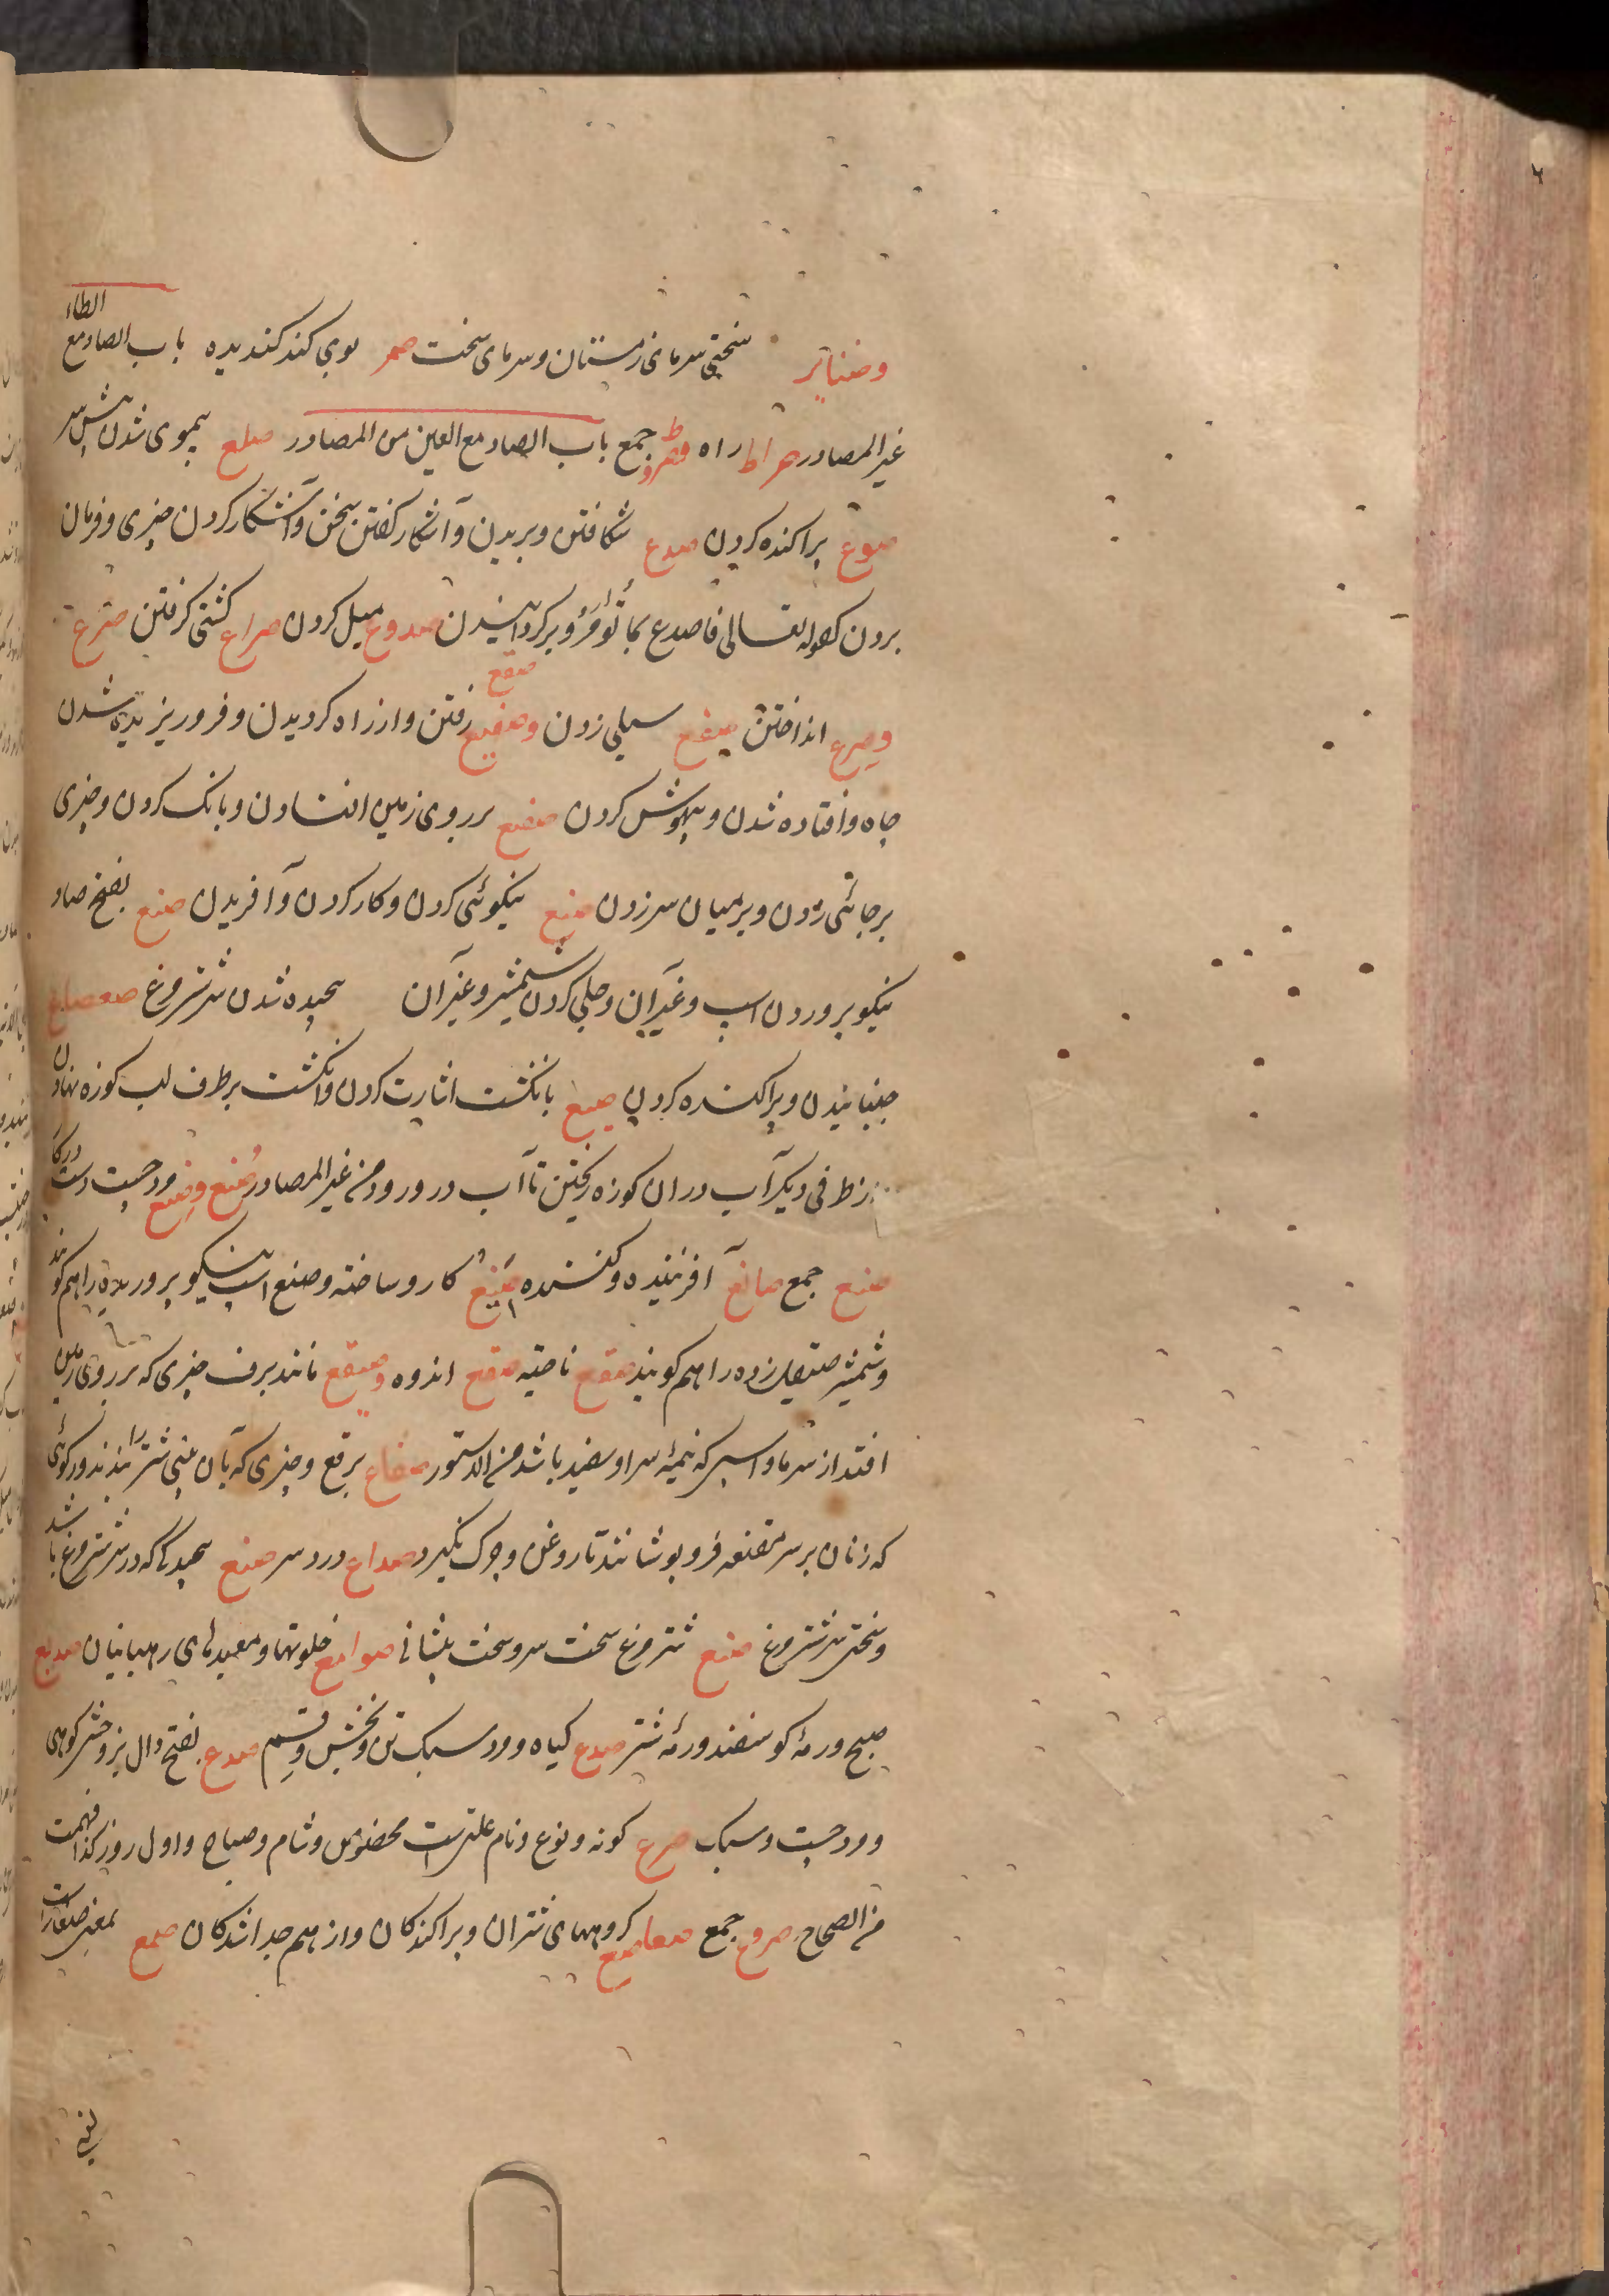 وصنابر سختی سرمای زمستان و سرمای سخت صمر بوی کند کندیده باب الصاد مع الطاء
غیر المصادر صراط راه صرط جمع باب الصاد مع العین من المصادر صلع بیموی شدن پیش سر
صوع پراکنده کردن صدع شکافتن و بریدن و آشکار کفتن سخن و آشکار کردن چیزی و فرمان
بردن کقوله تعالی فاصدع بما تؤمر و برکردانیدن صدوع میل کردن صراع کشتی کرفتن صرع
وصرع انداختن صفع سیلی زدن وصقیع صقع رفتن و از راه کردیدن و فرو ریزیده شدن
چاه و افتاده شدن و بیهوش کردن صقع بر روی زمین افتادن و بانک کردن و چیزی
بر جائی زدن و بر میان سر زدن صنع نیکوئی کردن و کار کردن و آفریدن صنع بفتح صاد
نیکو پروردن اسب و غیر آن و جلی کردن شمشیر و غیر آن پیچیده شدن سر شتر مرغ صعصاع
جنبانیدن و پراکنده کردن صبع بانکشت اشارت کردن و انکشت بر طرف لب کوزه نهادن
از طرفی دیکر آب در ان کوزه ریختن تا آب در و رود من غیر المصادر صنع وصنع مرد چست دست در کار
صنع جمع صانع آفریننده و کننده صنیع کار و ساخته و صنع اسب نیکو پروریده را هم کویند
و شمشیر صیقل زده را هم کویند صقع ناحیه صقع اندوه وصقیع مانند برف چیزی که بر روی زمین
افتد از سرما و اسپی که نیمهٔ سر او سفید باشد من الدستور صقاع برقع و چیزی که بآن بینی شتر را بندند و رکوئی
که زنان بر سر مقنعه فرو پوشانند تا روغن و چرک نکیرد صداع درد سر صنع پیچیدکی که در سر شتر مرغ باشد
و سختی سر شتر مرغ صنع شتر مرغ سخت سر و سخت پیشانی صوامع خلوتها و معبدهای رهبانیان صدیع
صبح و رمهٔ کوسفند و رمهٔ شتر صدع کیاه و مرد سبک تن و بخش و قسم صدع بفتح دال بز وحشی کوهی
و مرد چست و سبک صرع کونه و نوع و نام علتی است مخصوص و شام و صباح و اول روز کذا فهمت
من الصحاح صروع جمع صعاصع کروههای شتران و پراکندکان و از هم جدا شدکان صمع بمعنی